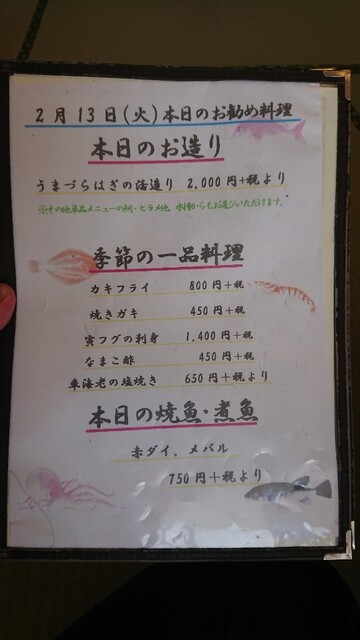 2月13日(火)本日のお勧め料理
本日のお造り
うまづらはぎの活造り 2,000円+税より
※その他単品メニューの鯛・ヒラメ他、水槽からもお選びいただけます。
季節の一品料理
カキフライ 800円+税
焼きガキ 450円+税
寅フグの刺身 1,400円+税
なまこ酢 450円+税
車海老の塩焼き 650円+税より
本日の焼魚・煮魚
赤ダイ、メバル
750円+税より